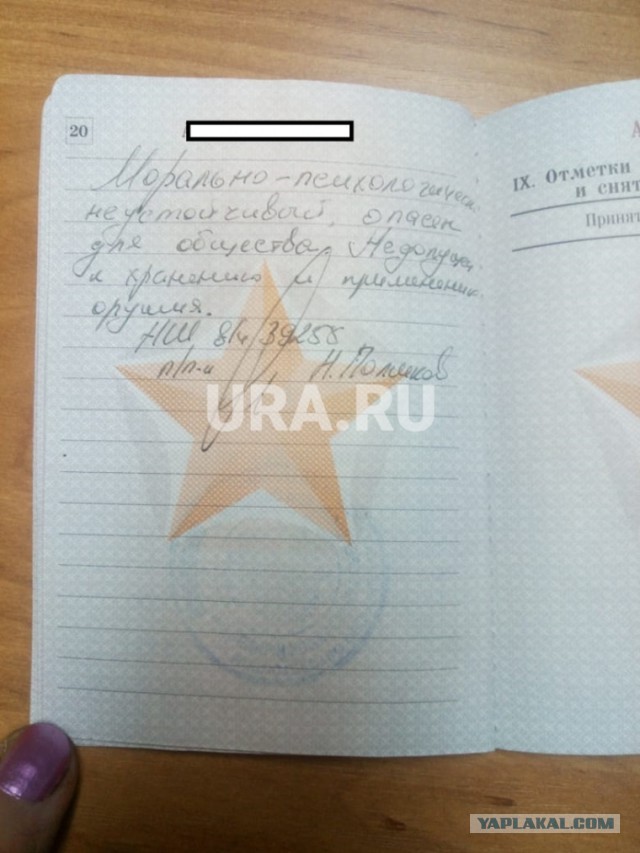 20
Морально-психологическ.
неустойчивый, опасен
для общества. Недопущен
к хранению и применению
оружия.
НШ в/ч 39255
п/п-к Н. Поляков
URA.RU
IX. Отметки
и снят
Принят
YAPLAKAL.COM